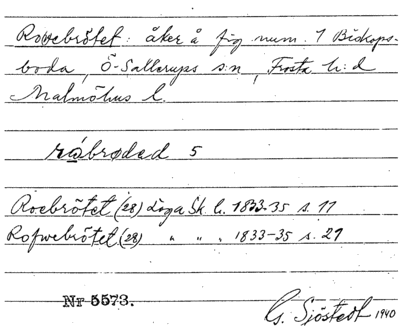 Rovebrötet: åker å fig num. 1 Biskops-
boda, Ö-Sallerups s:n, Frosta h:d
Malmöhus l.
5
Roebrötet (28) Löga Sk. h. 1833-35 s. 11
Rofwebrötet (28) " " , 1833-35 s. 21
Nr 5573.
G. Sjöstedt 1940